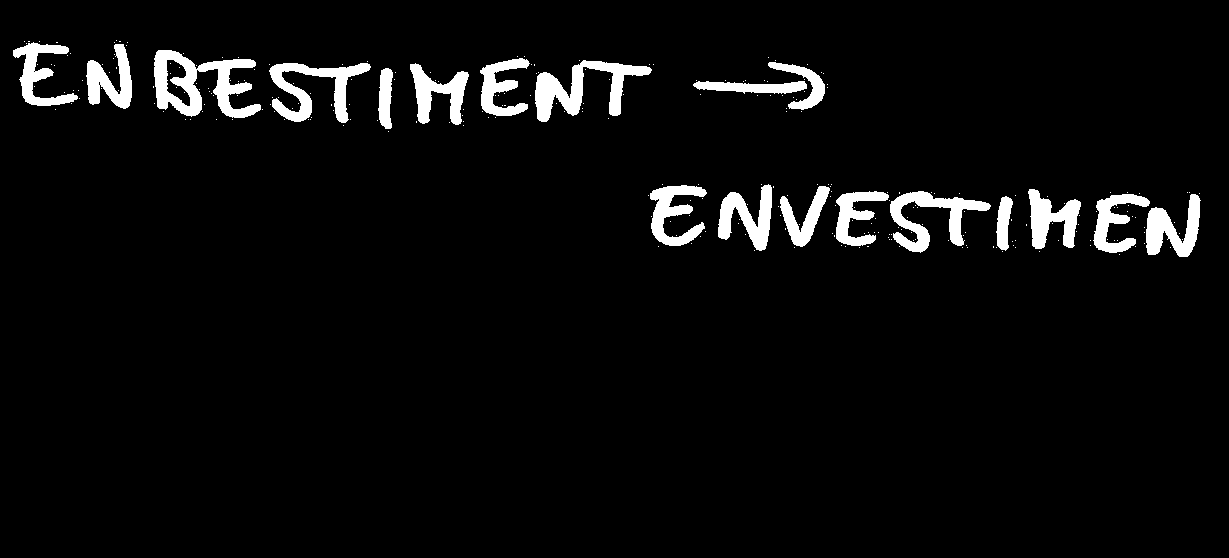 ENBESTIMENT →
ENVESTIMEN